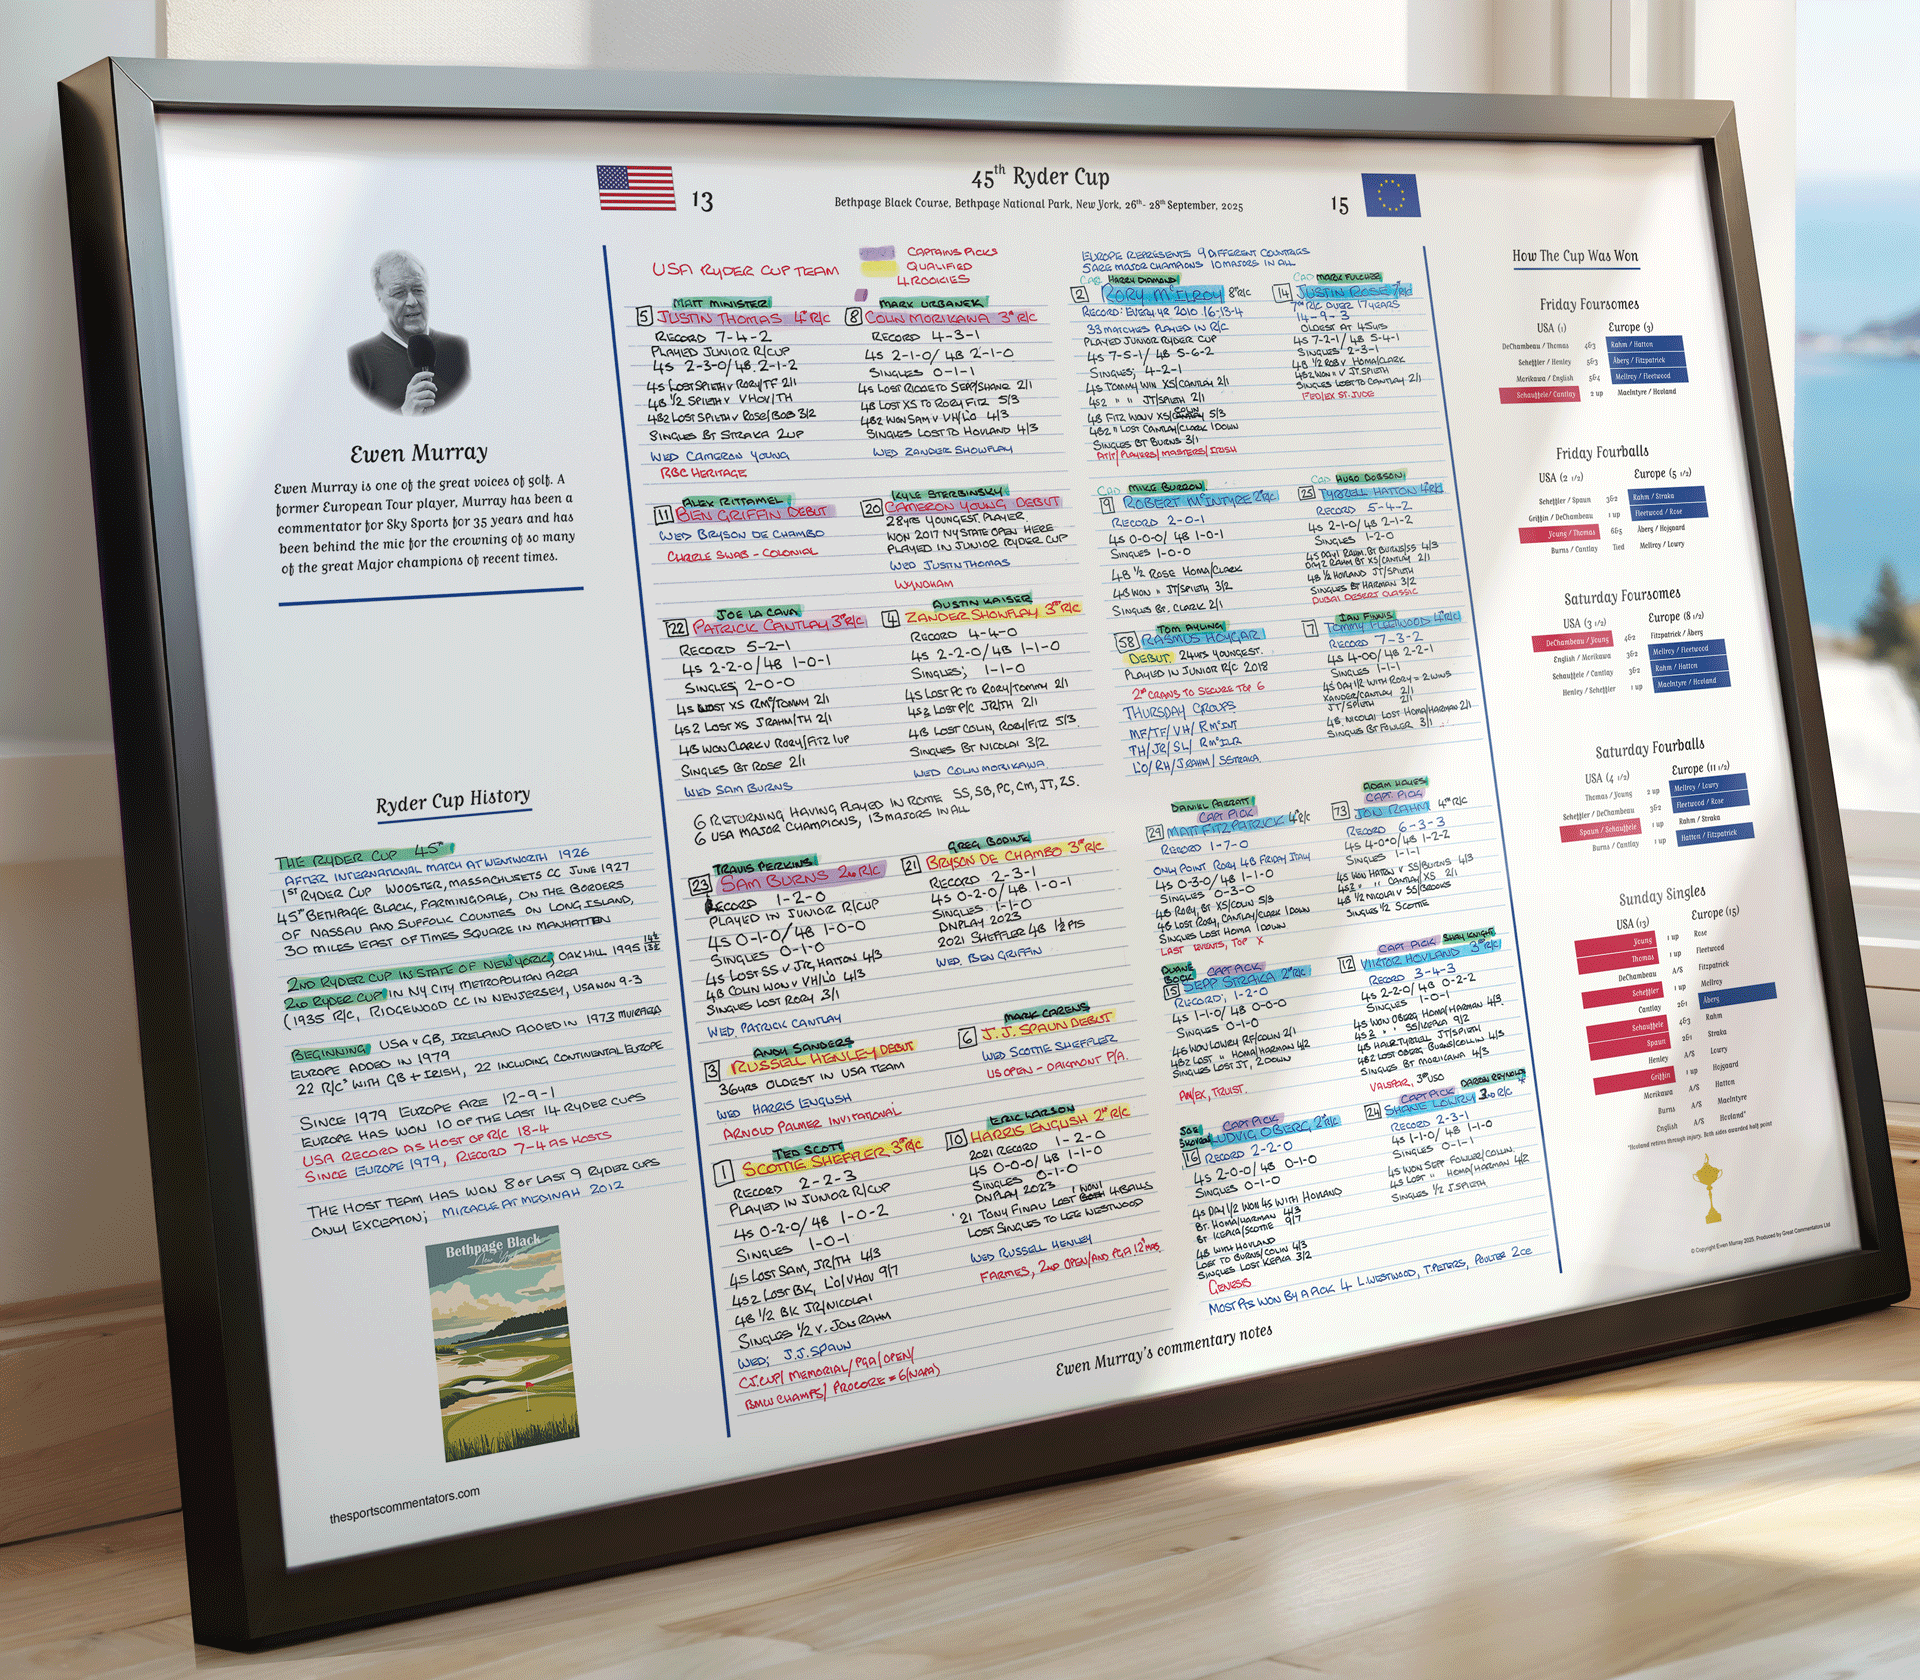 45th Ryder Cup
Bethpage Black Course, Bethpage National Park, New York, 26th - 28th September, 2025
13
15
Ewen Murray
Ewen Murray is one of the great voices of golf. A
former European Tour player, Murray has been a
commentator for Sky Sports for 35 years and has
been behind the mic for the crowning of so many
of the great Major champions of recent times.
Ryder Cup History
THE RYDER CUP 45th
AFTER INTERNATIONAL MATCH AT WENTWORTH 1926
1ST RYDER CUP WOOSTER, MASSACHUSETS CC JUNE 1927
45th BETHPAGE BLACK, FARMINGDALE, ON THE BORDERS
OF NASSAU AND SUFFOLK COUNTIES ON LONG ISLAND,
30 MILES EAST OF TIMES SQUARE IN MANHATTEN
2ND RYDER CUP IN STATE OF NEW YORK, OAK HILL 1995 14½ 13½
2ND RYDER CUP IN NY CITY METROPOLITAN AREA
(1935 R/C, RIDGEWOOD CC IN NEW JERSEY, USA WON 9-3
BEGINNING USA V GB, IRELAND ADDED IN 1973 MUIRFIELD
EUROPE ADDED IN 1979
22 R/C's WITH GB + IRISH, 22 INCLUDING CONTINENTAL EUROPE
SINCE 1979 EUROPE ARE 12-9-1
EUROPE HAS WON 10 OF THE LAST 14 RYDER CUPS
USA RECORD AS HOST OF R/C 18-4
SINCE EUROPE 1979, RECORD 7-4 AS HOSTS
THE HOST TEAM HAS WON 8 OF LAST 9 RYDER CUPS
ONLY EXCEPTION; MIRACLE AT MEDINAH 2012
Bethpage Black
New York
thesportscommentators.com
USA RYDER CUP TEAM
CAPTAINS PICKS
QUALIFIED
4 ROOKIES
MATT MINISTER
5 JUSTIN THOMAS 4th R/C
RECORD 7-4-2
PLAYED JUNIOR R/CUP
4S 2-3-0/4B 2-1-2
4S LOST SPIETH V RORY/TF 2/1
4B ½ SPIETH V VHOV/TH
4B2 LOST SPIETH V ROSE/BOB 3/2
SINGLES BT STRAKA 2UP
WED CAMERON YOUNG
RBC HERITAGE
MARK URBANEK
8 COLIN MORIKAWA 3rd R/C
RECORD 4-3-1
4S 2-1-0/4B 2-1-0
SINGLES 0-1-1
4S LOST RICKIE TO SEPP/SHANE 2/1
4B LOST XS TO RORY FITZ 5/3
4B2 WON SAM V VH/LO 4/3
SINGLES LOST TO HOVLAND 4/3
WED ZANDER SHOWFLAY
ALEX RITTAMEL
11 BEN GRIFFIN DEBUT
WED BRYSON DE CHAMBO
CHARLE SWAB - COLONIAL
KYLE STERBINSKY
20 CAMERON YOUNG DEBUT
28YRS YOUNGEST PLAYER
WON 2017 NY STATE OPEN HERE
PLAYED IN JUNIOR RYDER CUP
WED JUSTIN THOMAS
WYNDHAM
JOE LA CAVA
22 PATRICK CANTLAY 3rd R/C
RECORD 5-2-1
4S 2-2-0/4B 1-0-1
SINGLES; 2-0-0
4S LOST XS RMc/TOMMY 2/1
4S2 LOST XS JRAHM/TH 2/1
4B WON CLARK V RORY/FITZ 1UP
SINGLES BT ROSE 2/1
WED SAM BURNS
AUSTIN KAISER
4 ZANDER SHOWFLAY 3rd R/C
RECORD 4-4-0
4S 2-2-0/4B 1-1-0
SINGLES; 1-1-0
4S LOST PC TO RORY/TOMMY 2/1
4S2 LOST P/C JR/TH 2/1
4B LOST COLIN, RORY/FITZ 5/3
SINGLES BT NICOLAI 3/2
WED COLIN MORIKAWA
6 RETURNING HAVING PLAYED IN ROME SS, SB, PC, CM, JT, ZS.
6 USA MAJOR CHAMPIONS, 13 MAJORS IN ALL
TRAVIS PERKINS
23 SAM BURNS 2ND R/C
RECORD 1-2-0
PLAYED IN JUNIOR R/CUP
4S 0-1-0/4B 1-0-0
SINGLES 0-1-0
4S LOST SS V JR, HATTON 4/3
4B COLIN WON V VH/LO 4/3
SINGLES LOST RORY 3/1
WED. PATRICK CANTLAY
GREG BODINE
21 BRYSON DE CHAMBO 3rd R/C
RECORD 2-3-1
4S 0-2-0/4B 1-0-1
SINGLES 1-1-0
DNPLAY 2023
2021 SHEFFLER 4B 1½ PTS
WED. BEN GRIFFIN
ANDY SANDERS
3 RUSSELL HENLEY DEBUT
36YRS OLDEST IN USA TEAM
WED HARRIS ENGLISH
ARNOLD PALMER INVITATIONAL
MARK CARENS
6 J.J. SPAUN DEBUT
WED SCOTTIE SHEFFLER
US OPEN - OAKMONT P/A.
TED SCOTT
1 SCOTTIE SHEFFLER 3rd R/C
RECORD 2-2-3
PLAYED IN JUNIOR R/CUP
4S 0-2-0/4B 1-0-2
SINGLES 1-0-1
4S LOST SAM, JR/TH 4/3
4S2 LOST BK, LO/VHOV 9/7
4B ½ BK JR/NICOLAI
SINGLES ½ V. JON RAHM
WED; J.J. SPAUN
CJ.CUP/ MEMORIAL/PGA/OPEN/
BMW CHAMPS/ PROCORE = 6 (NAPA)
ERIC LARSON
10 HARRIS ENGLISH 2nd R/C
2021 RECORD 1-2-0
4S 0-0-0/4B 1-1-0
SINGLES 0-1-0
DNPLAY 2023 1 WON 1
'21 TONY FINAU LOST BOTH 4BALLS
LOST SINGLES TO LEE WESTWOOD
WED RUSSELL HENLEY
FARMIES, 2ND OPEN/AND PGA 12 MOS
EUROPE REPRESENTS 9 DIFFERENT COUNTRIES
5 ARE MAJOR CHAMPIONS 10 MAJORS IN ALL
CAD HARRY DIAMOND
2 RORY McILROY 8th R/C
RECORD: EVERY YR 2010. 16-13-4
33 MATCHES PLAYED IN R/C
PLAYED JUNIOR RYDER CUP
4S 7-5-1/ 4B 5-6-2
SINGLES; 4-2-1
4S TOMMY WIN XS/CANTLAY 2/1
4S2 " " JT/SPIETH 2/1
4B FITZ WON V XS/COLIN 5/3
4B2 " LOST CANTLAY/CLARK 1DOWN
SINGLES BT BURNS 3/1
AT/T/PLAYERS/MASTERS/IRISH
CAD MARK FULCHER
14 JUSTIN ROSE 7th R/C
7th R/C OVER 17 YEARS
14-9-3
OLDEST AT 45YRS
4S 7-2-1/ 4B 5-4-1
SINGLES 2-3-1
4B ½ ROB V HOMA/CLARK
4B2 WON " V JT.SPIETH
SINGLES LOST TO CANTLAY 2/1
FED/EX ST. JUDE
CAD MIKE BURROW
9 ROBERT McINTYRE 2nd R/C
RECORD 2-0-1
4S 0-0-0/ 4B 1-0-1
SINGLES 1-0-0
4B ½ ROSE HOMA/CLARK
4B WON " JT/SPIETH 3/2
SINGLES BT. CLARK 2/1
CAD HUGO DOBSON
25 TYRRELL HATTON 4th R/C
RECORD 5-4-2
4S 2-1-0/ 4B 2-1-2
SINGLES 1-2-0
4S DAY1 RAHM. BT BURNS/SS 4/3
DAY2 RAHM BT XS/CANTLAY 2/1
4B ½ HOVLAND JT/SPIETH
SINGLES BT HARMAN 3/2
DUBAI DESERT CLASSIC
TOM AYLING
58 RASMUS HOYGAR
DEBUT. 24YRS YOUNGEST.
PLAYED IN JUNIOR R/C 2018
2nd CRANS TO SECURE TOP 6
THURSDAY GROUPS
MF/TF/VH/ RMcINT
TH/JR/SL/ RMcILR
LO/RH/J.RAHM/SSTRAKA
IAN FINNIS
7 TOMMY FLEETWOOD 4th R/C
RECORD 7-3-2
4S 4-0-0/ 4B 2-2-1
SINGLES 1-1-1
4S DAY 1/2 WITH RORY = 2 WINS
XANDER/CANTLAY 2/1
JT/SPIETH 2/1
4B. NICOLAI LOST HOMA/HARMAN 2/1
SINGLES BT FOWLER 3/1
DANIEL PARRATT
CAPT PICK
29 MATT FITZPATRICK 4th R/C
RECORD 1-7-0
ONLY POINT RORY 4B FRIDAY ITALY
4S 0-3-0/ 4B 1-1-0
SINGLES 0-3-0
4B RORY, BT XS/COLIN 5/3
4B LOST RORY, CANTLAY/CLARK 1DOWN
SINGLES LOST HOMA 1DOWN
LAST EVENTS, TOP X
ADAM HAYES
CAPT. PICK
73 JON RAHM 4th R/C
RECORD 6-3-3
4S 4-0-0/ 4B 1-2-2
SINGLES 1-1-1
4S WON HATTON V SS/BURNS 4/3
4S2 " " CANTLAY/XS 2/1
4B ½ NICOLAI V SS/BROOKS
SINGLES ½ SCOTTIE
DUANE BOCK CAPT PICK
15 SEPP STRAKA 2nd R/C
RECORD; 1-2-0
4S 1-1-0/ 4B 0-0-0
SINGLES 0-1-0
4S WON LOWRY RF/COLIN 2/1
4S2 LOST " HOMA/HARMAN 4/2
SINGLES LOST JT, 2DOWN
AM/EX, TRUIST.
CAPT PICK SHAY KNIGHT
12 VIKTOR HOVLAND 3rd R/C
RECORD 3-4-3
4S 2-2-0/ 4B 0-2-2
SINGLES 1-0-1
4S WON OBERG HOMA/HARMAN 4/3
4S2 " " SS/KEPKA 9/7
4B HALF TYRRELL JT/SPIETH
4B2 LOST OBERG BURNS/COLLIN 4/3
SINGLES BT MORIKAWA 4/3
VALSPAR, 3rd USO
CAPT PICK
JOE SKOVRON LUDVIG OBERG 2nd R/C
16 RECORD 2-2-0
4S 2-0-0/ 4B 0-1-0
SINGLES 0-1-0
4S DAY 1/2 WON 4S WITH HOVLAND
BT. HOMA/HARMAN 4/3
BT KEPKA/SCOTTIE 9/7
4B WITH HOVLAND
LOST TO BURNS/COLIN 4/3
SINGLES LOST KEPKA 3/2
GENESIS
CAPT PICK DARREN REYNOLDS
24 SHANE LOWRY 3RD R/C
RECORD 2-3-1
4S 1-1-0/ 4B 1-1-0
SINGLES 0-1-1
4S WON SEPP FOWLER/COLLIN.
4S LOST " HOMA/HARMAN 4/2
SINGLES ½ J.SPIETH
MOST PTS WON BY A PICK 4 L.WESTWOOD, T.PIETERS, POULTER 2ce
Ewen Murray's commentary notes
How The Cup Was Won
Friday Foursomes
USA (1) Europe (3)
DeChambeau / Thomas 4&3 Rahm / Hatton
Scheffler / Henley 5&3 Åberg / Fitzpatrick
Morikawa / English 5&4 McIlroy / Fleetwood
Schauffele / Cantlay 2 up MacIntyre / Hovland
Friday Fourballs
USA (2 1/2) Europe (5 1/2)
Scheffler / Spaun 3&2 Rahm / Straka
Griffin / DeChambeau 1 up Fleetwood / Rose
Young / Thomas 6&5 Åberg / Hojgaard
Burns / Cantlay Tied McIlroy / Lowry
Saturday Foursomes
USA (3 1/2) Europe (8 1/2)
DeChambeau / Young 4&2 Fitzpatrick / Åberg
English / Morikawa 3&2 McIlroy / Fleetwood
Schauffele / Cantlay 3&2 Rahm / Hatton
Henley / Scheffler 1 up MacIntyre / Hovland
Saturday Fourballs
USA (4 1/2) Europe (11 1/2)
Thomas / Young 2 up McIlroy / Lowry
Scheffler / DeChambeau 3&2 Fleetwood / Rose
Spaun / Schauffele 1 up Rahm / Straka
Burns / Cantlay 1 up Hatton / Fitzpatrick
Sunday Singles
USA (13) Europe (15)
Young 1 up Rose
Thomas 1 up Fleetwood
DeChambeau A/S Fitzpatrick
Scheffler 1 up McIlroy
Cantlay 2&1 Åberg
Schauffele 4&3 Rahm
Spaun 2&1 Straka
Henley A/S Lowry
Griffin 1 up Hojgaard
Morikawa A/S Hatton
Burns A/S MacIntyre
English A/S Hovland*
*Hovland retires through injury. Both sides awarded half point
© Copyright Ewen Murray 2025. Produced by Great Commentators Ltd